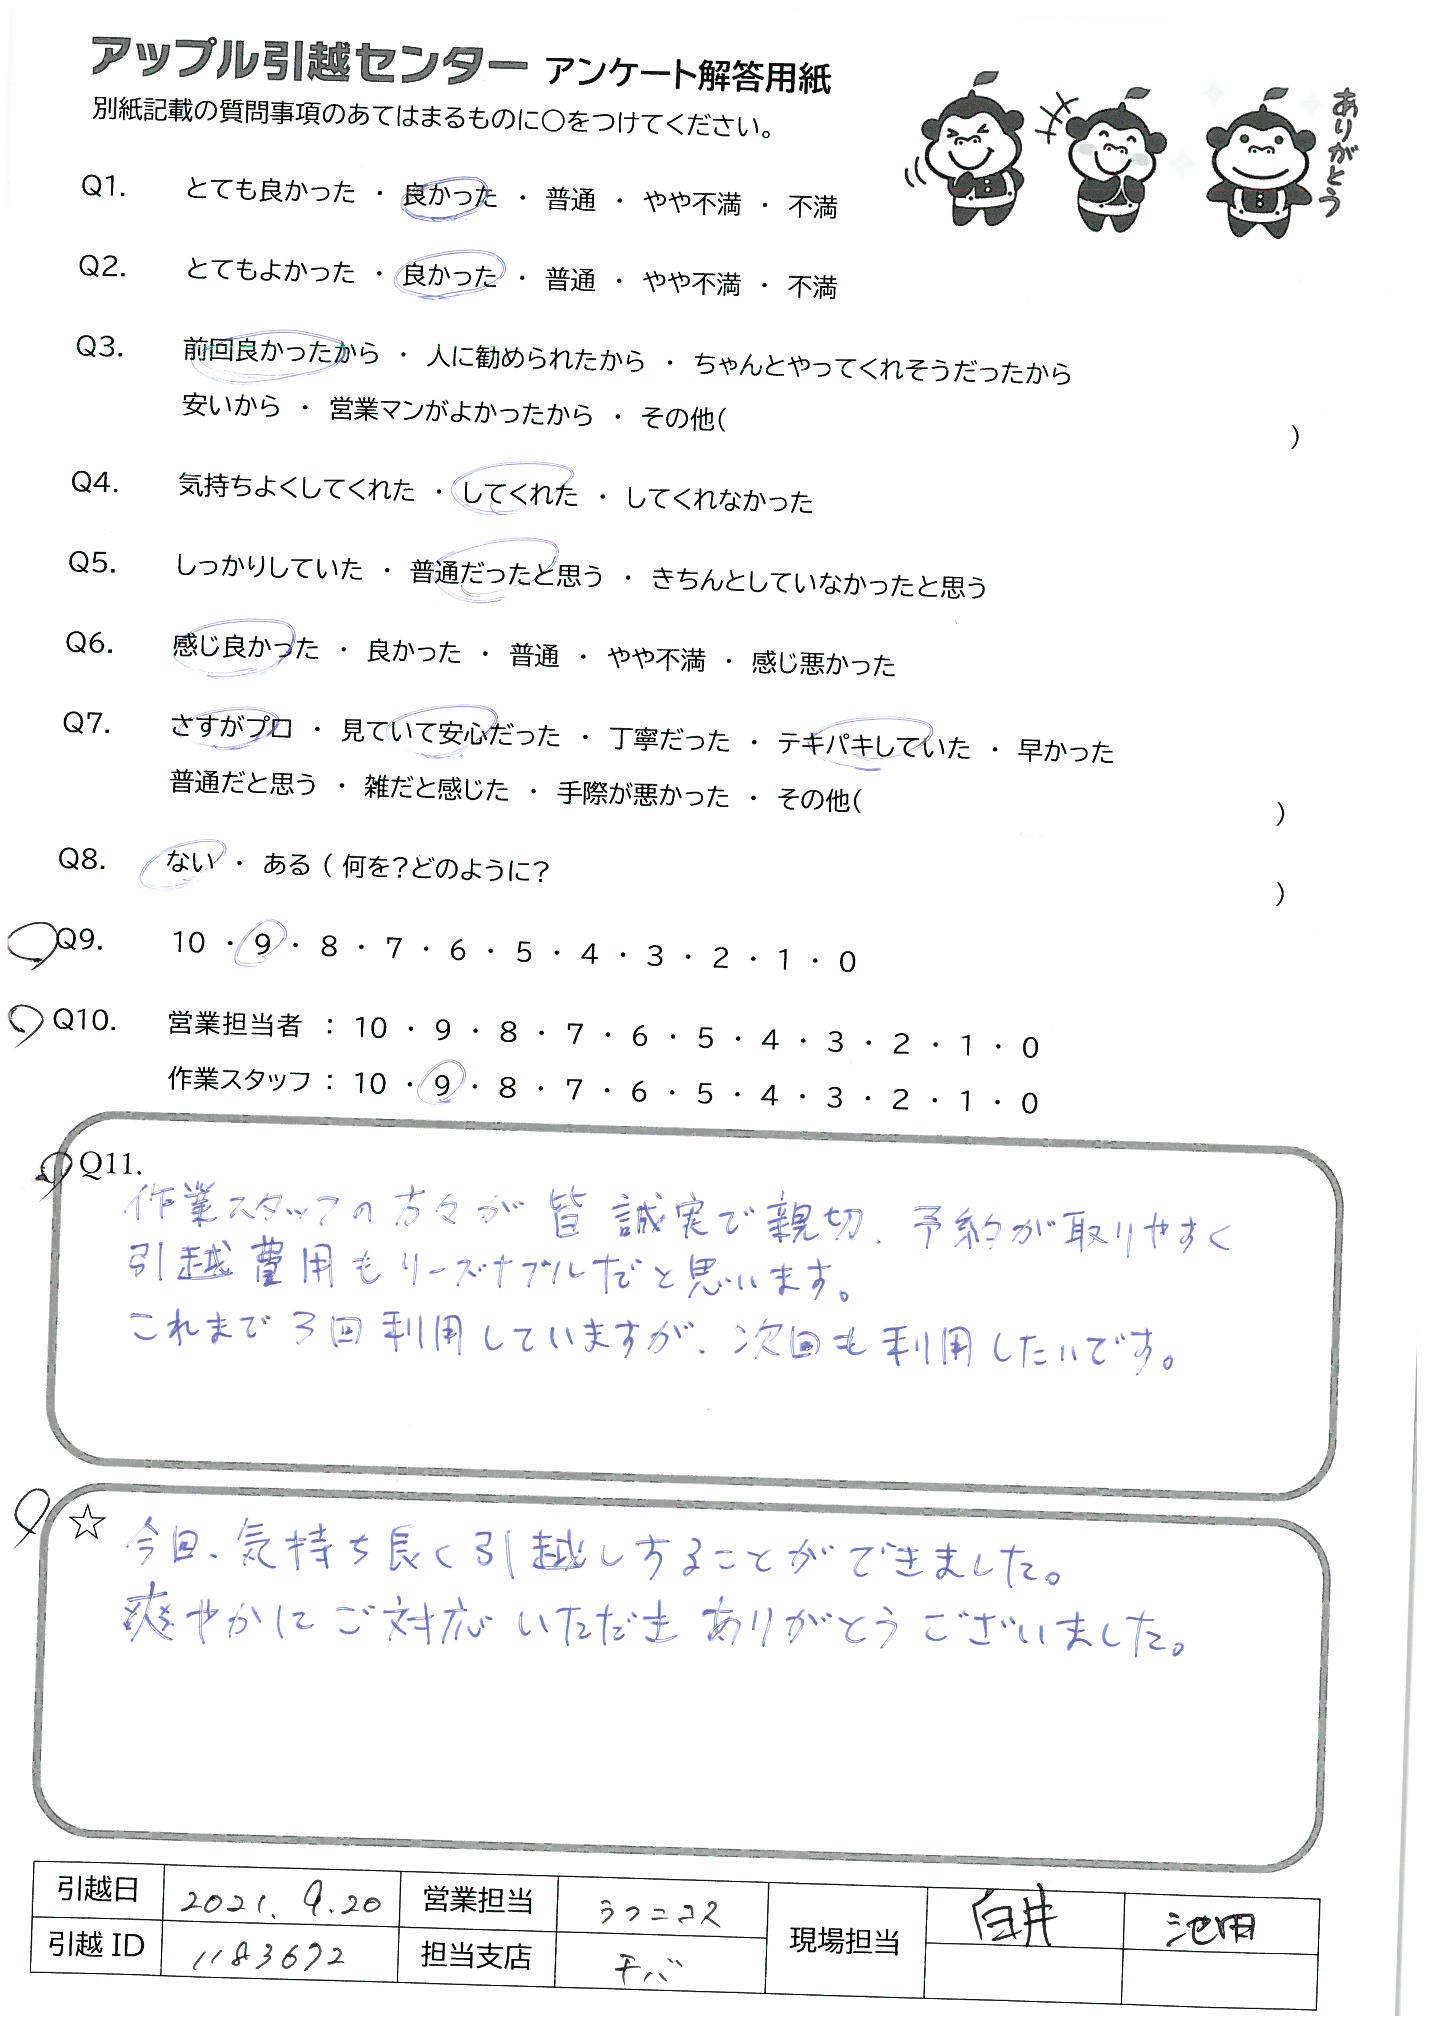 アップル引越センター アンケート解答用紙
別紙記載の質問事項のあてはまるものに○をつけてください。
ありがとう
Q1. とても良かった ・ 良かった ・ 普通 ・ やや不満 ・ 不満
Q2. とてもよかった ・ 良かった ・ 普通 ・ やや不満 ・ 不満
Q3. 前回良かったから ・ 人に勧められたから ・ ちゃんとやってくれそうだったから
安いから ・ 営業マンがよかったから ・ その他( )
Q4. 気持ちよくしてくれた ・ してくれた ・ してくれなかった
Q5. しっかりしていた ・ 普通だったと思う ・ きちんとしていなかったと思う
Q6. 感じ良かった ・ 良かった ・ 普通 ・ やや不満 ・ 感じ悪かった
Q7. さすがプロ ・ 見ていて安心だった ・ 丁寧だった ・ テキパキしていた ・ 早かった
普通だと思う ・ 雑だと感じた ・ 手際が悪かった ・ その他( )
Q8. ない ・ ある ( 何を?どのように? )
Q9. 10 ・ 9 ・ 8 ・ 7 ・ 6 ・ 5 ・ 4 ・ 3 ・ 2 ・ 1 ・ 0
Q10. 営業担当者 : 10 ・ 9 ・ 8 ・ 7 ・ 6 ・ 5 ・ 4 ・ 3 ・ 2 ・ 1 ・ 0
作業スタッフ : 10 ・ 9 ・ 8 ・ 7 ・ 6 ・ 5 ・ 4 ・ 3 ・ 2 ・ 1 ・ 0
Q11.
作業スタッフの方々が皆誠実で親切、予約が取りやすく
引越費用もリーズナブルだと思います。
これまで3回利用していますが、次回も利用したいです。
☆ 今回、気持ち良く引越しすることができました。
爽やかにご対応いただきありがとうございました。
引越日 2021.9.20 営業担当 現場担当 白井 池田
引越ID 1183692 担当支店 千バ